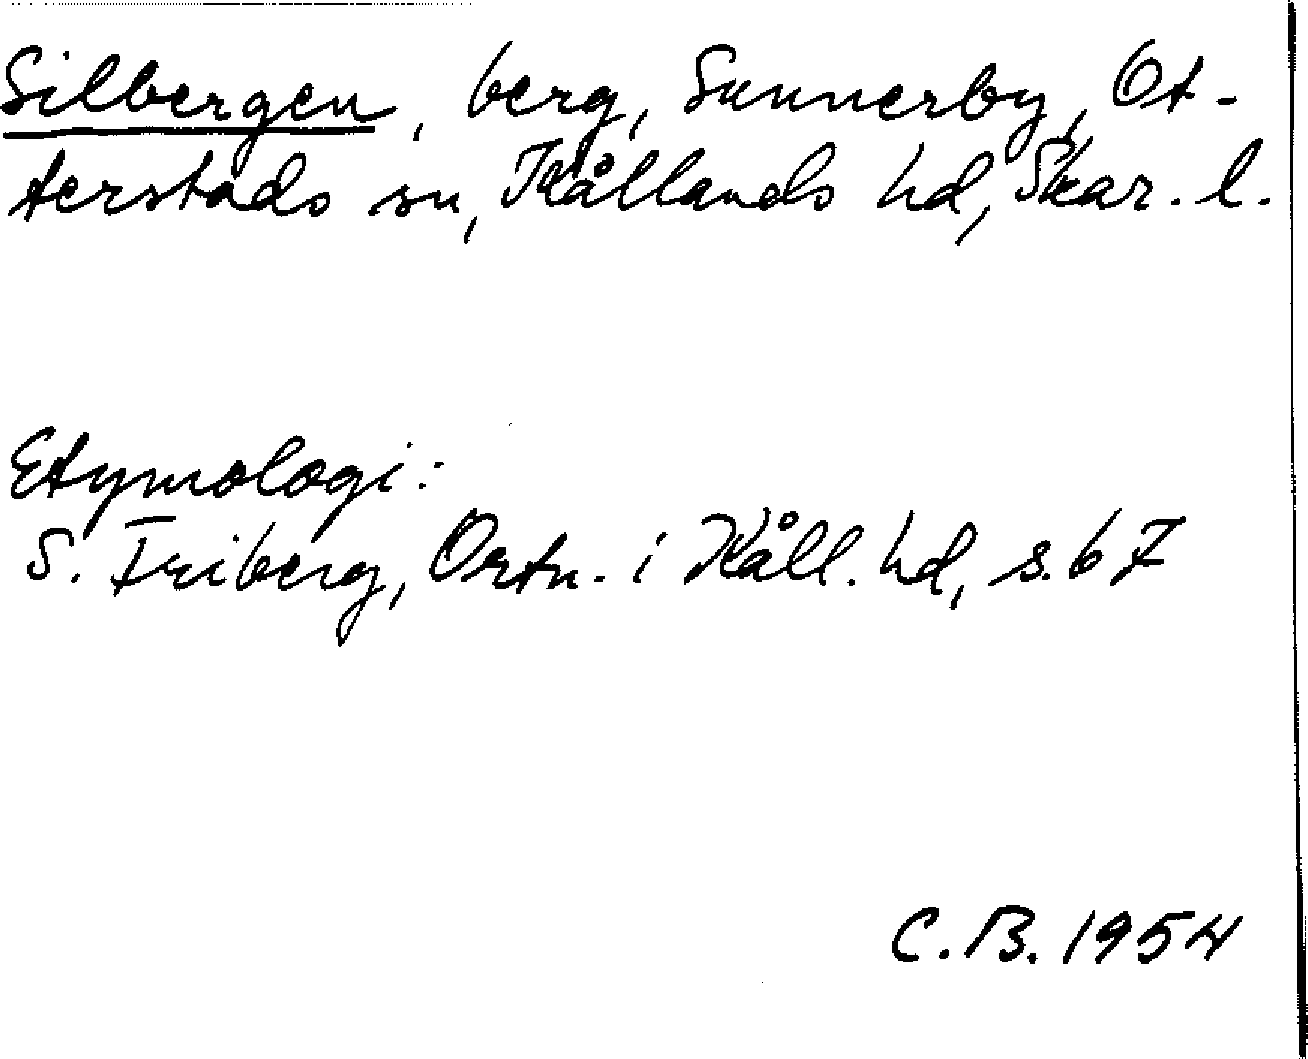 Silbergen, berg, Sunnerby, Ot-
terstads sn, Kållands hd, Skar. l.
Etymologi:
S. Friberg, Ortn. i Kåll. hd, s. 67
C.B. 1954